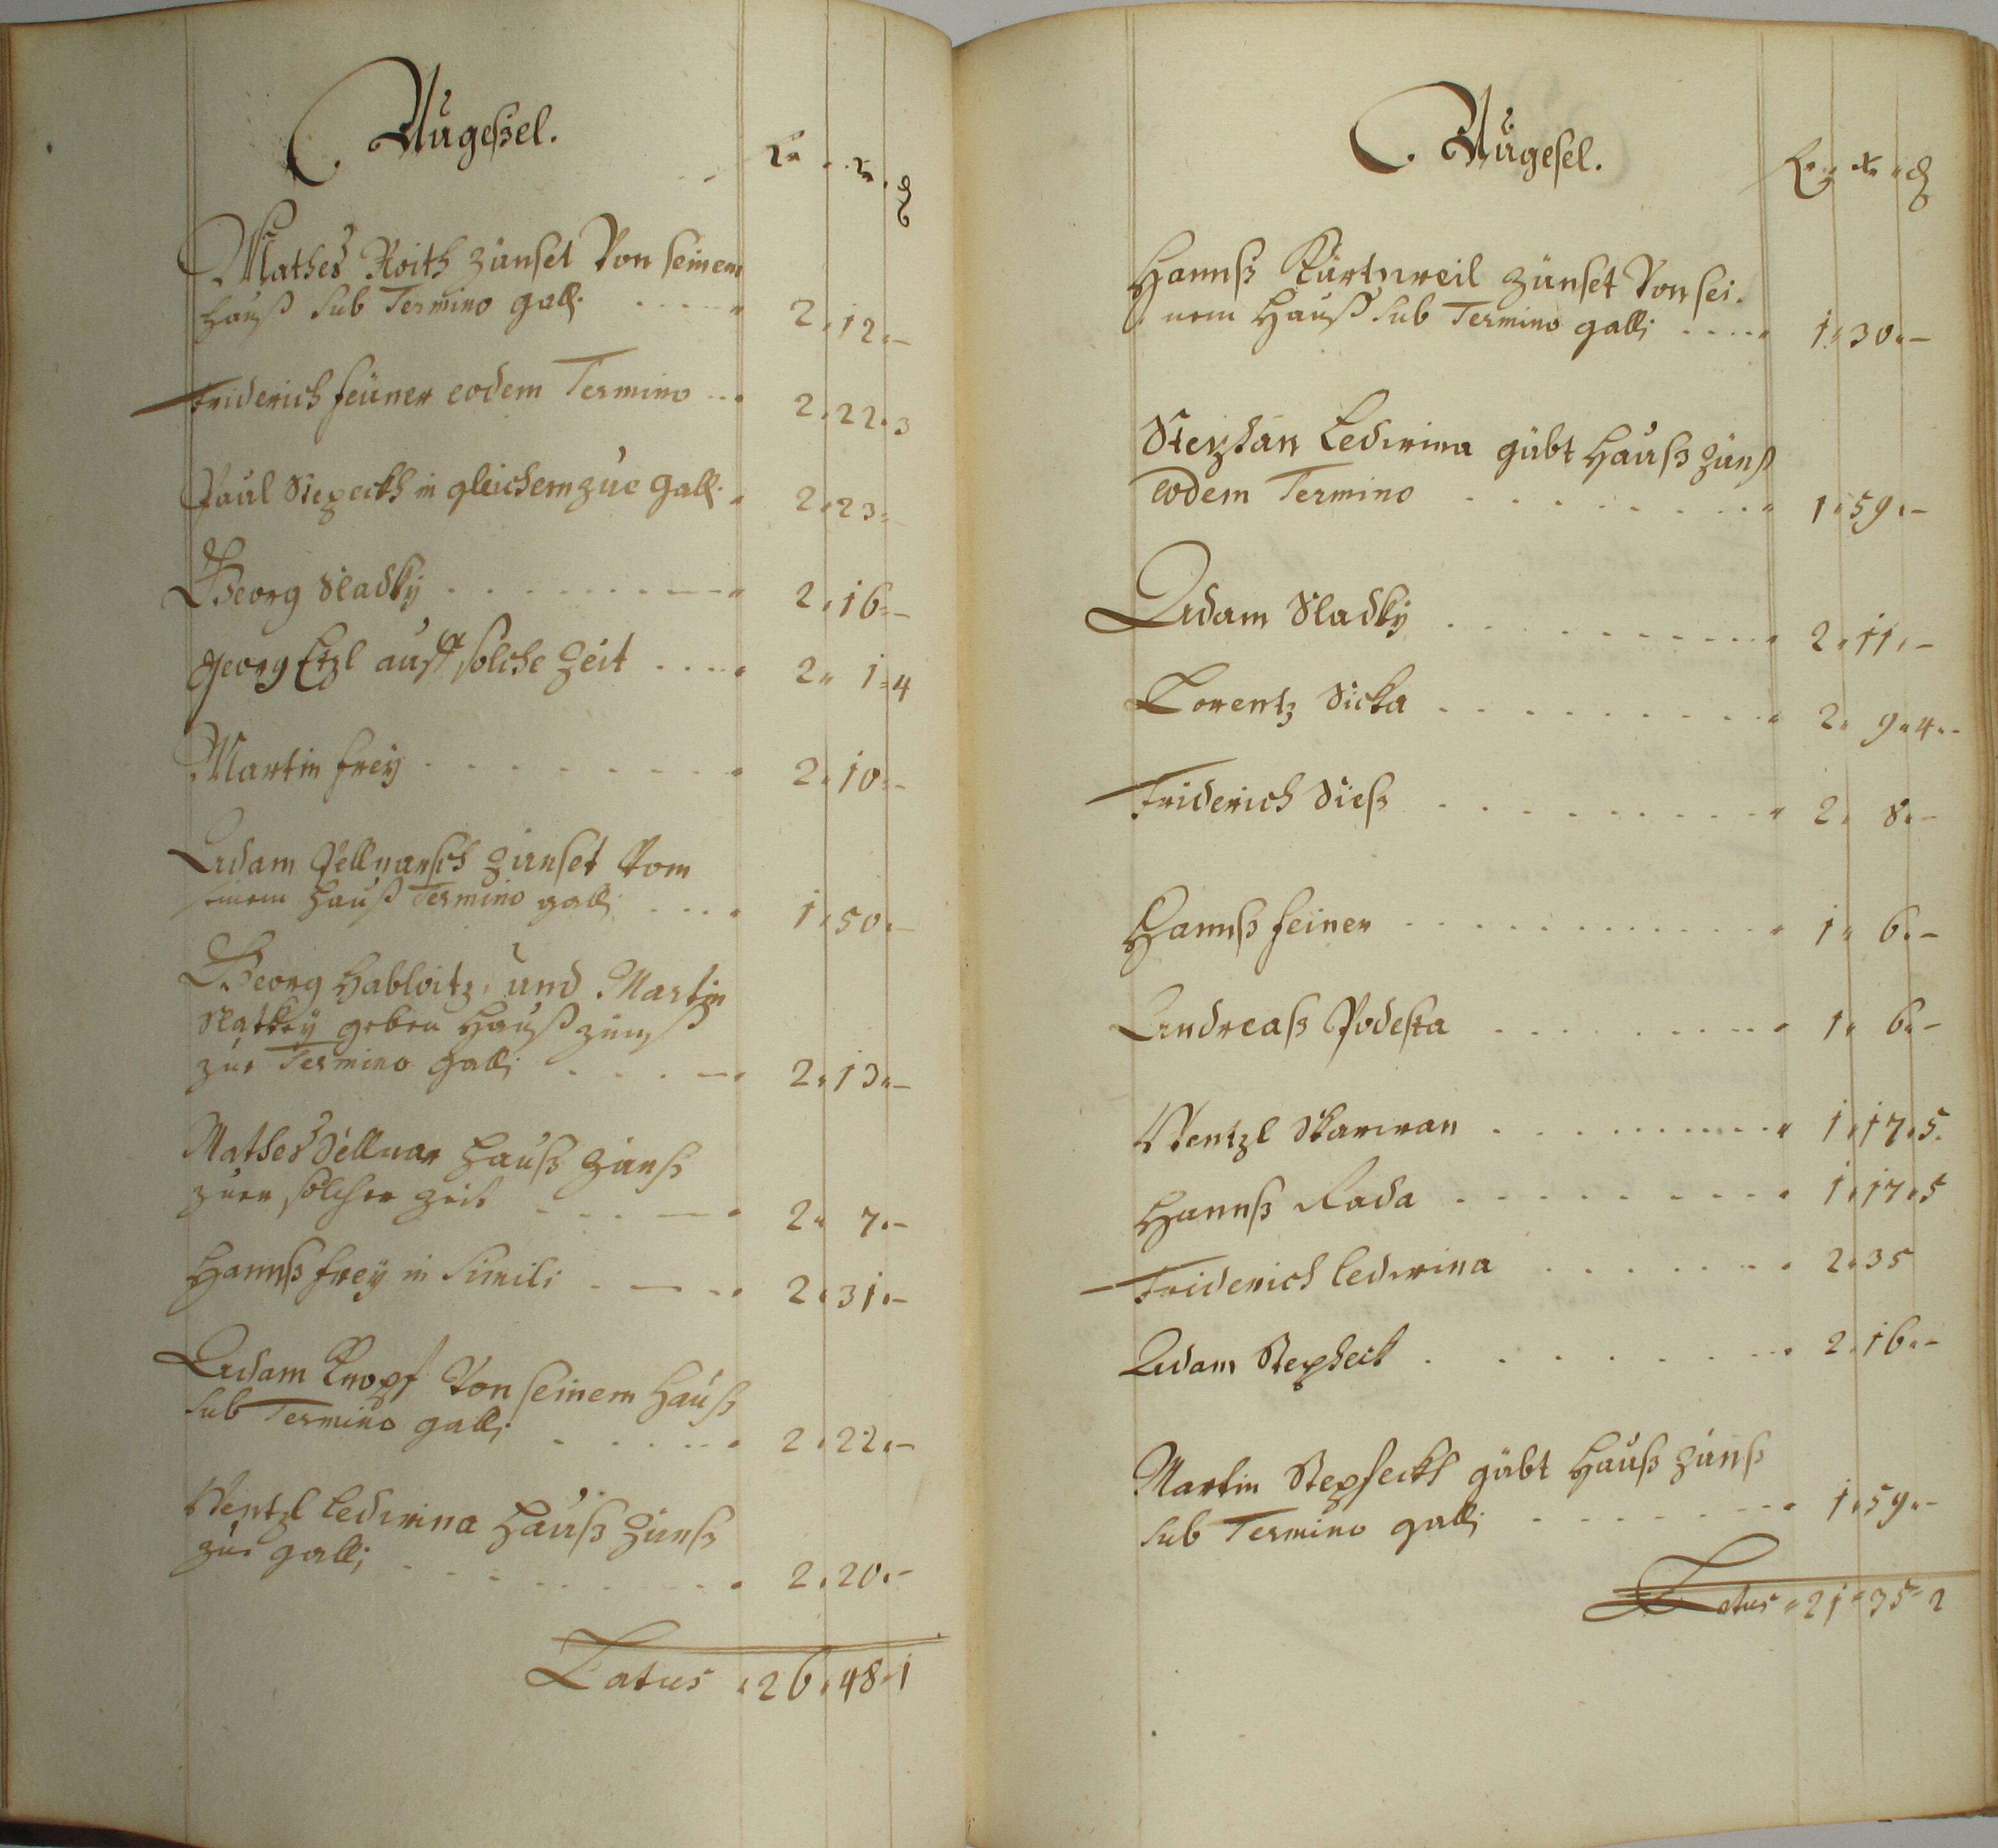 Aügessel.
Mathes Roith Zünset Von seinem
Hauß Sub Termino galli 2 12 -
Friderich feüner eodem Termino 2 22 3
Paul Stepeckh in gleichem zue Galli 2 23 -
Georg Sladky 2 16 -
Georg Etzl auff solche Zeit 2 1 4
Martin frey 2 10 -
Adam Zünset Vom
seinem Hauß Termino galli 1 50 -
Georg Habloitz, und Martin
geben Hauß zünß
zue Termino Galli 2 13 -
Mathes Hauß Zünß
zuer solcher Zeit 2 7 -
Hannß freÿ in Simili 2 31 -
Adam Knopf Von seinem Hauß
Sub Termino galli 2 22 -
Wentzl Ledwina Hauß Zünß
zue galli 2 20 -
Latus 26 48 1
Aügesel.
Hannß Zünset Von sei-
nem Hauß Sub Termino galli 1 30 -
Stephan Ledwina gübt Hauß Zünß
eodem Termino 1 59 -
Adam Sladky 2 11 -
Lorentz Sicka 2 9 4 -
Friderich Sieß 2 8 -
Hannß feiner 1 6 -
Andreaß Podesta 1 6 -
Wentzl Skarwan 1 17 5
Hannß Rada 1 17 5
Friderich Ledwina 2 35
Adam Stepheck 2 16 -
Martin Stepfeckh gübt Hauß Zünß
Sub Termino galli 1 59 -
Latus 21 35 2